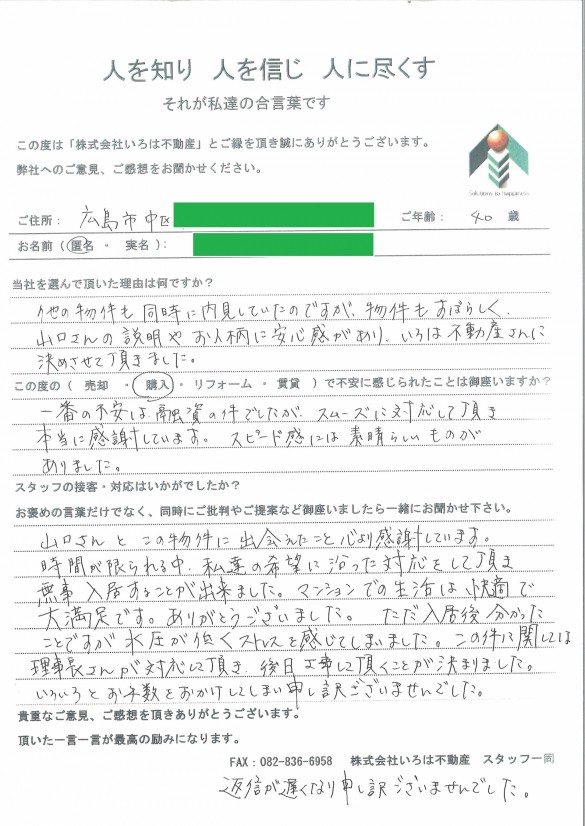 人を知り 人を信じ 人に尽くす
それが私達の合言葉です
この度は「株式会社いろは不動産」とご縁を頂き誠にありがとうございます。
弊社へのご意見、ご感想をお聞かせください。
Solutions to happiness
ご住所： 広島市中区
ご年齢： 40 歳
お名前（匿名 ・ 実名）：
当社を選んで頂いた理由は何ですか？
他の物件も同時に内見していたのですが、物件もすばらしく、
山口さんの説明やお人柄に安心感があり、いろは不動産さんに
決めさせて頂きました。
この度の（ 売却 ・ 購入 ・ リフォーム ・ 賃貸 ）で不安に感じられたことは御座いますか？
一番の不安は、融資の件でしたが、スムーズに対応して頂き
本当に感謝しています。スピード感には素晴らしいものが
ありました。
スタッフの接客・対応はいかがでしたか？
お褒めの言葉だけでなく、同時にご批判やご提案など御座いましたら一緒にお聞かせ下さい。
山口さんとこの物件に出会えたこと心より感謝しています。
時間が限られる中、私達の希望に沿った対応をして頂き
無事入居することが出来ました。マンションでの生活は快適で
大満足です。ありがとうございました。 ただ入居後分かった
ことですが水圧が低くストレスを感じてしまいました。この件に関しては
理事長さんが対応して頂き、後日工事して頂くことが決まりました。
いろいろとお手数をおかけしてしまい申し訳ございませんでした。
貴重なご意見、ご感想を頂きありがとうございます。
頂いた一言一言が最高の励みになります。
FAX：082-836-6958 株式会社いろは不動産 スタッフ一同
返信が遅くなり申し訳ございませんでした。